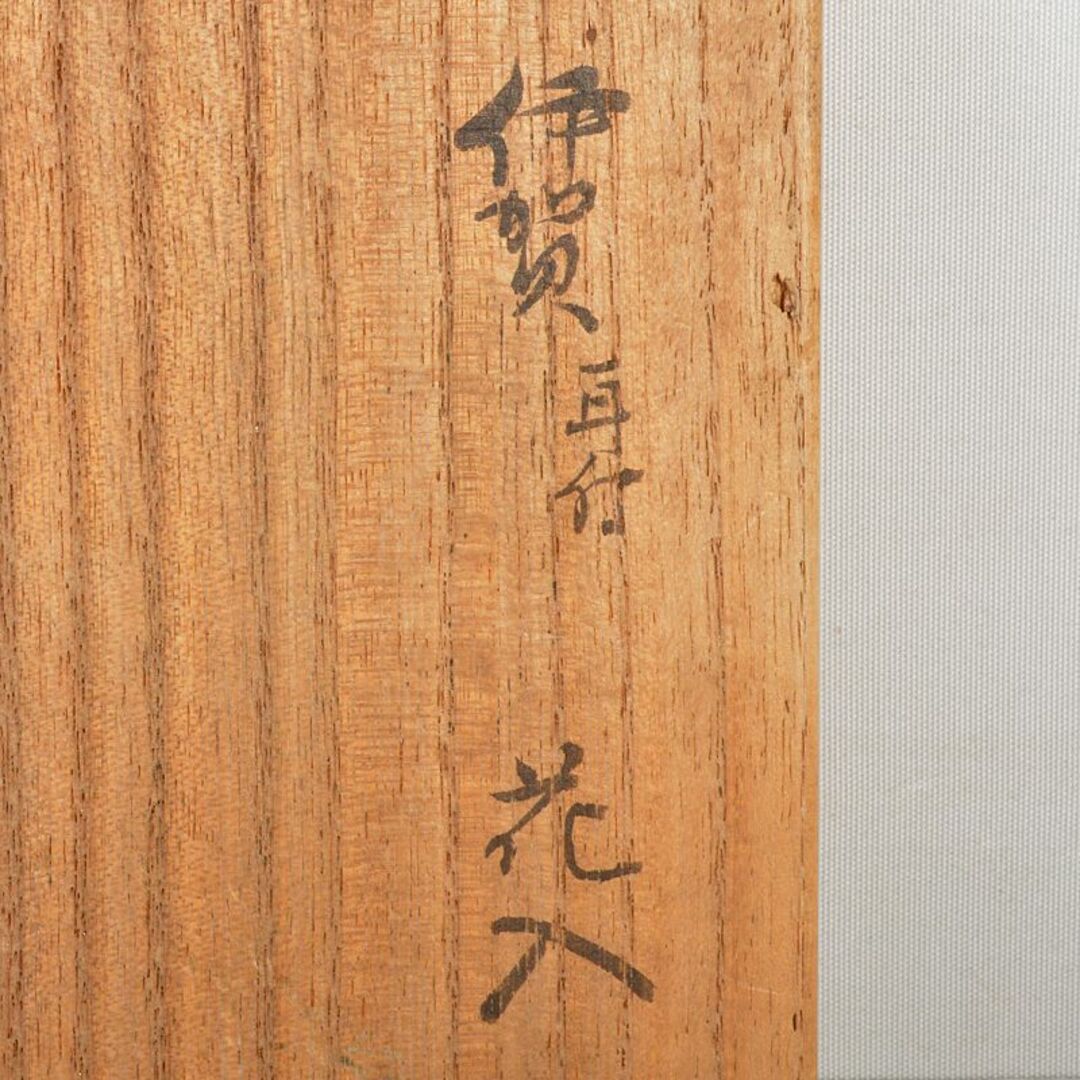 伊賀耳付花入